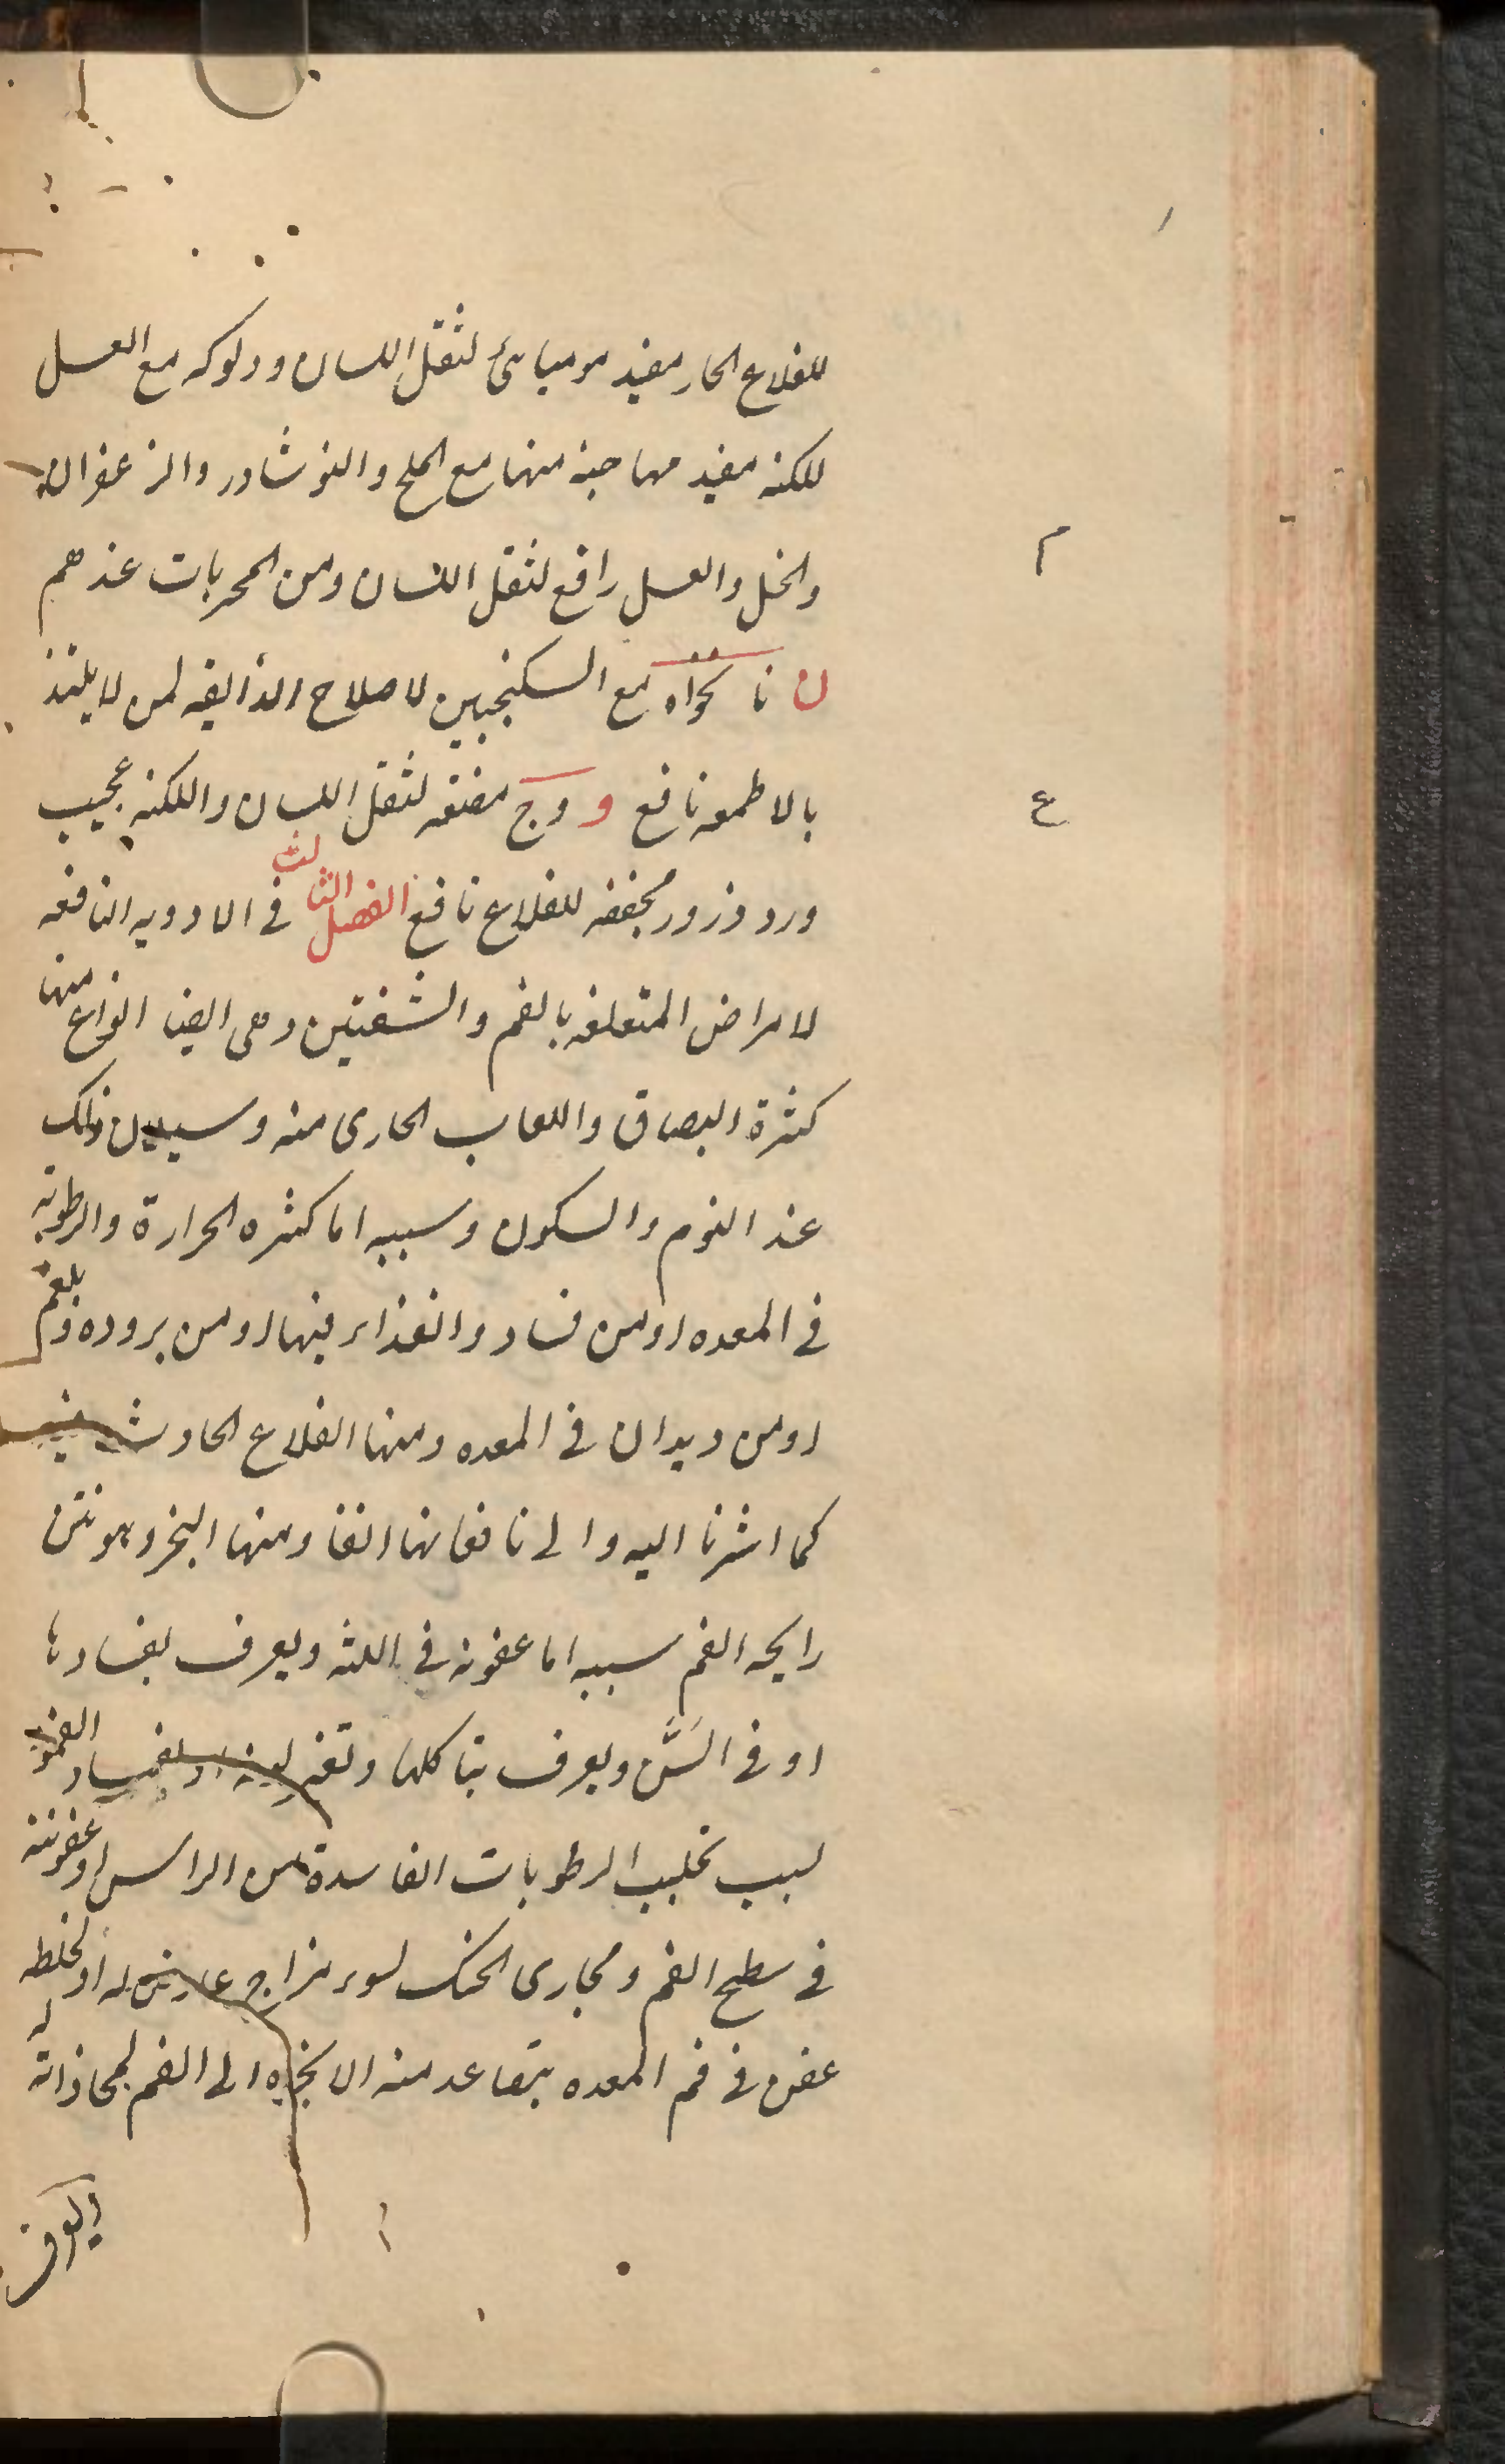 للقلاع الحار مفيد مومیائی لثقل اللسان ودلوکه مع العسل
للکنه مفید مهاجنه منها مع الملح والنوشادر والزعفران
والخل والعسل رافع لثقل اللسان ومن المجربات عندهم
م
ن نانخواه مع السکنجبین لاصلاح الذایقه لمن لا یلتذ
بالاطمعه نافع و وج مضغه لثقل اللسان واللکنه عجیب
ع
ورد وزرور مجففه للقلاع نافع الفصل الثالث فی الادویه النافعه
لامراض المتعلقه بالفم والشفتین وهی ایضا انواع منها
کثرة البصاق واللعاب الجاری منه وسیلان ذلک
عند النوم والسکون وسببه اما کثره الحرارة والرطوبه
فی المعده او من فساد والغذاء فیها او من بروده وبلغم
او من دیدان فی المعده ومنها القلاع الحادث فیه
کما اشرنا الیه والی نافعاتها انفا ومنها البخر وهو نتن
رایحه الفم سببه اما عفونه فی اللثه ویعرف بفسادها
او فی السَّن ویعرف بتاکلها وتغیر لونه او لفساد العمور
لسبب تحلیب الرطوبات الفاسدة من الراس او عفونته
فی سطح الفم ومجاری الحنک لسوء مزاج عارض له او لخلطه
عفن فی فم المعده یتصاعد منه الابخره الی الفم لمحاذاته له
ویعرف